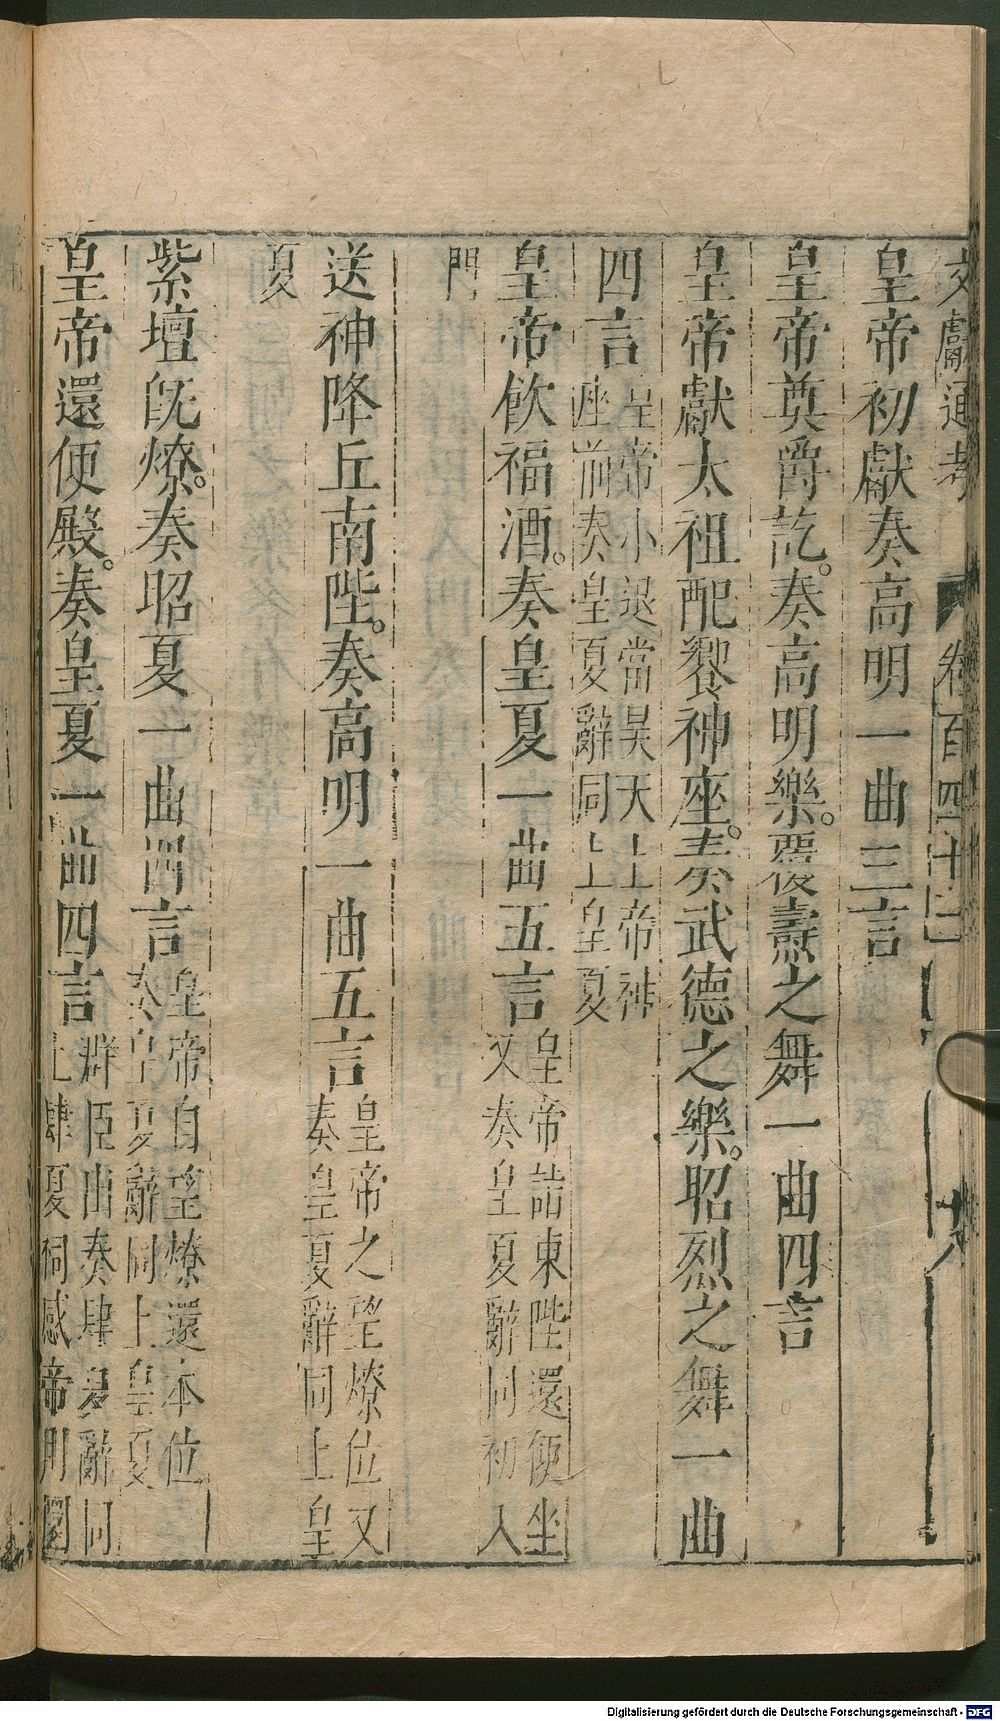 文獻通考 卷一百四十二 十八
皇帝初獻奏高明一曲三言
皇帝奠爵訖。奏高明樂。覆燾之舞一曲四言
皇帝獻太祖配饗神座。奏武德之樂。昭烈之舞一曲
四言 皇帝小退當昊天上帝神
座前奏皇夏辭同上皇夏
皇帝飲福酒。奏皇夏一曲五言 皇帝詣東陛還便坐
又奏皇夏辭同初入
門
送神降丘南陛。奏高明一曲五言 皇帝之望燎位又
奏皇夏辭同上皇
夏
紫壇旣燎。奏昭夏一曲四言 皇帝自望燎還本位
奏皇夏辭同上皇夏
皇帝還便殿。奏皇夏一曲四言 群臣出奏肆夏辭同
上肆夏祠感帝用圜
Digitalisierung gefördert durch die Deutsche Forschungsgemeinschaft - DFG